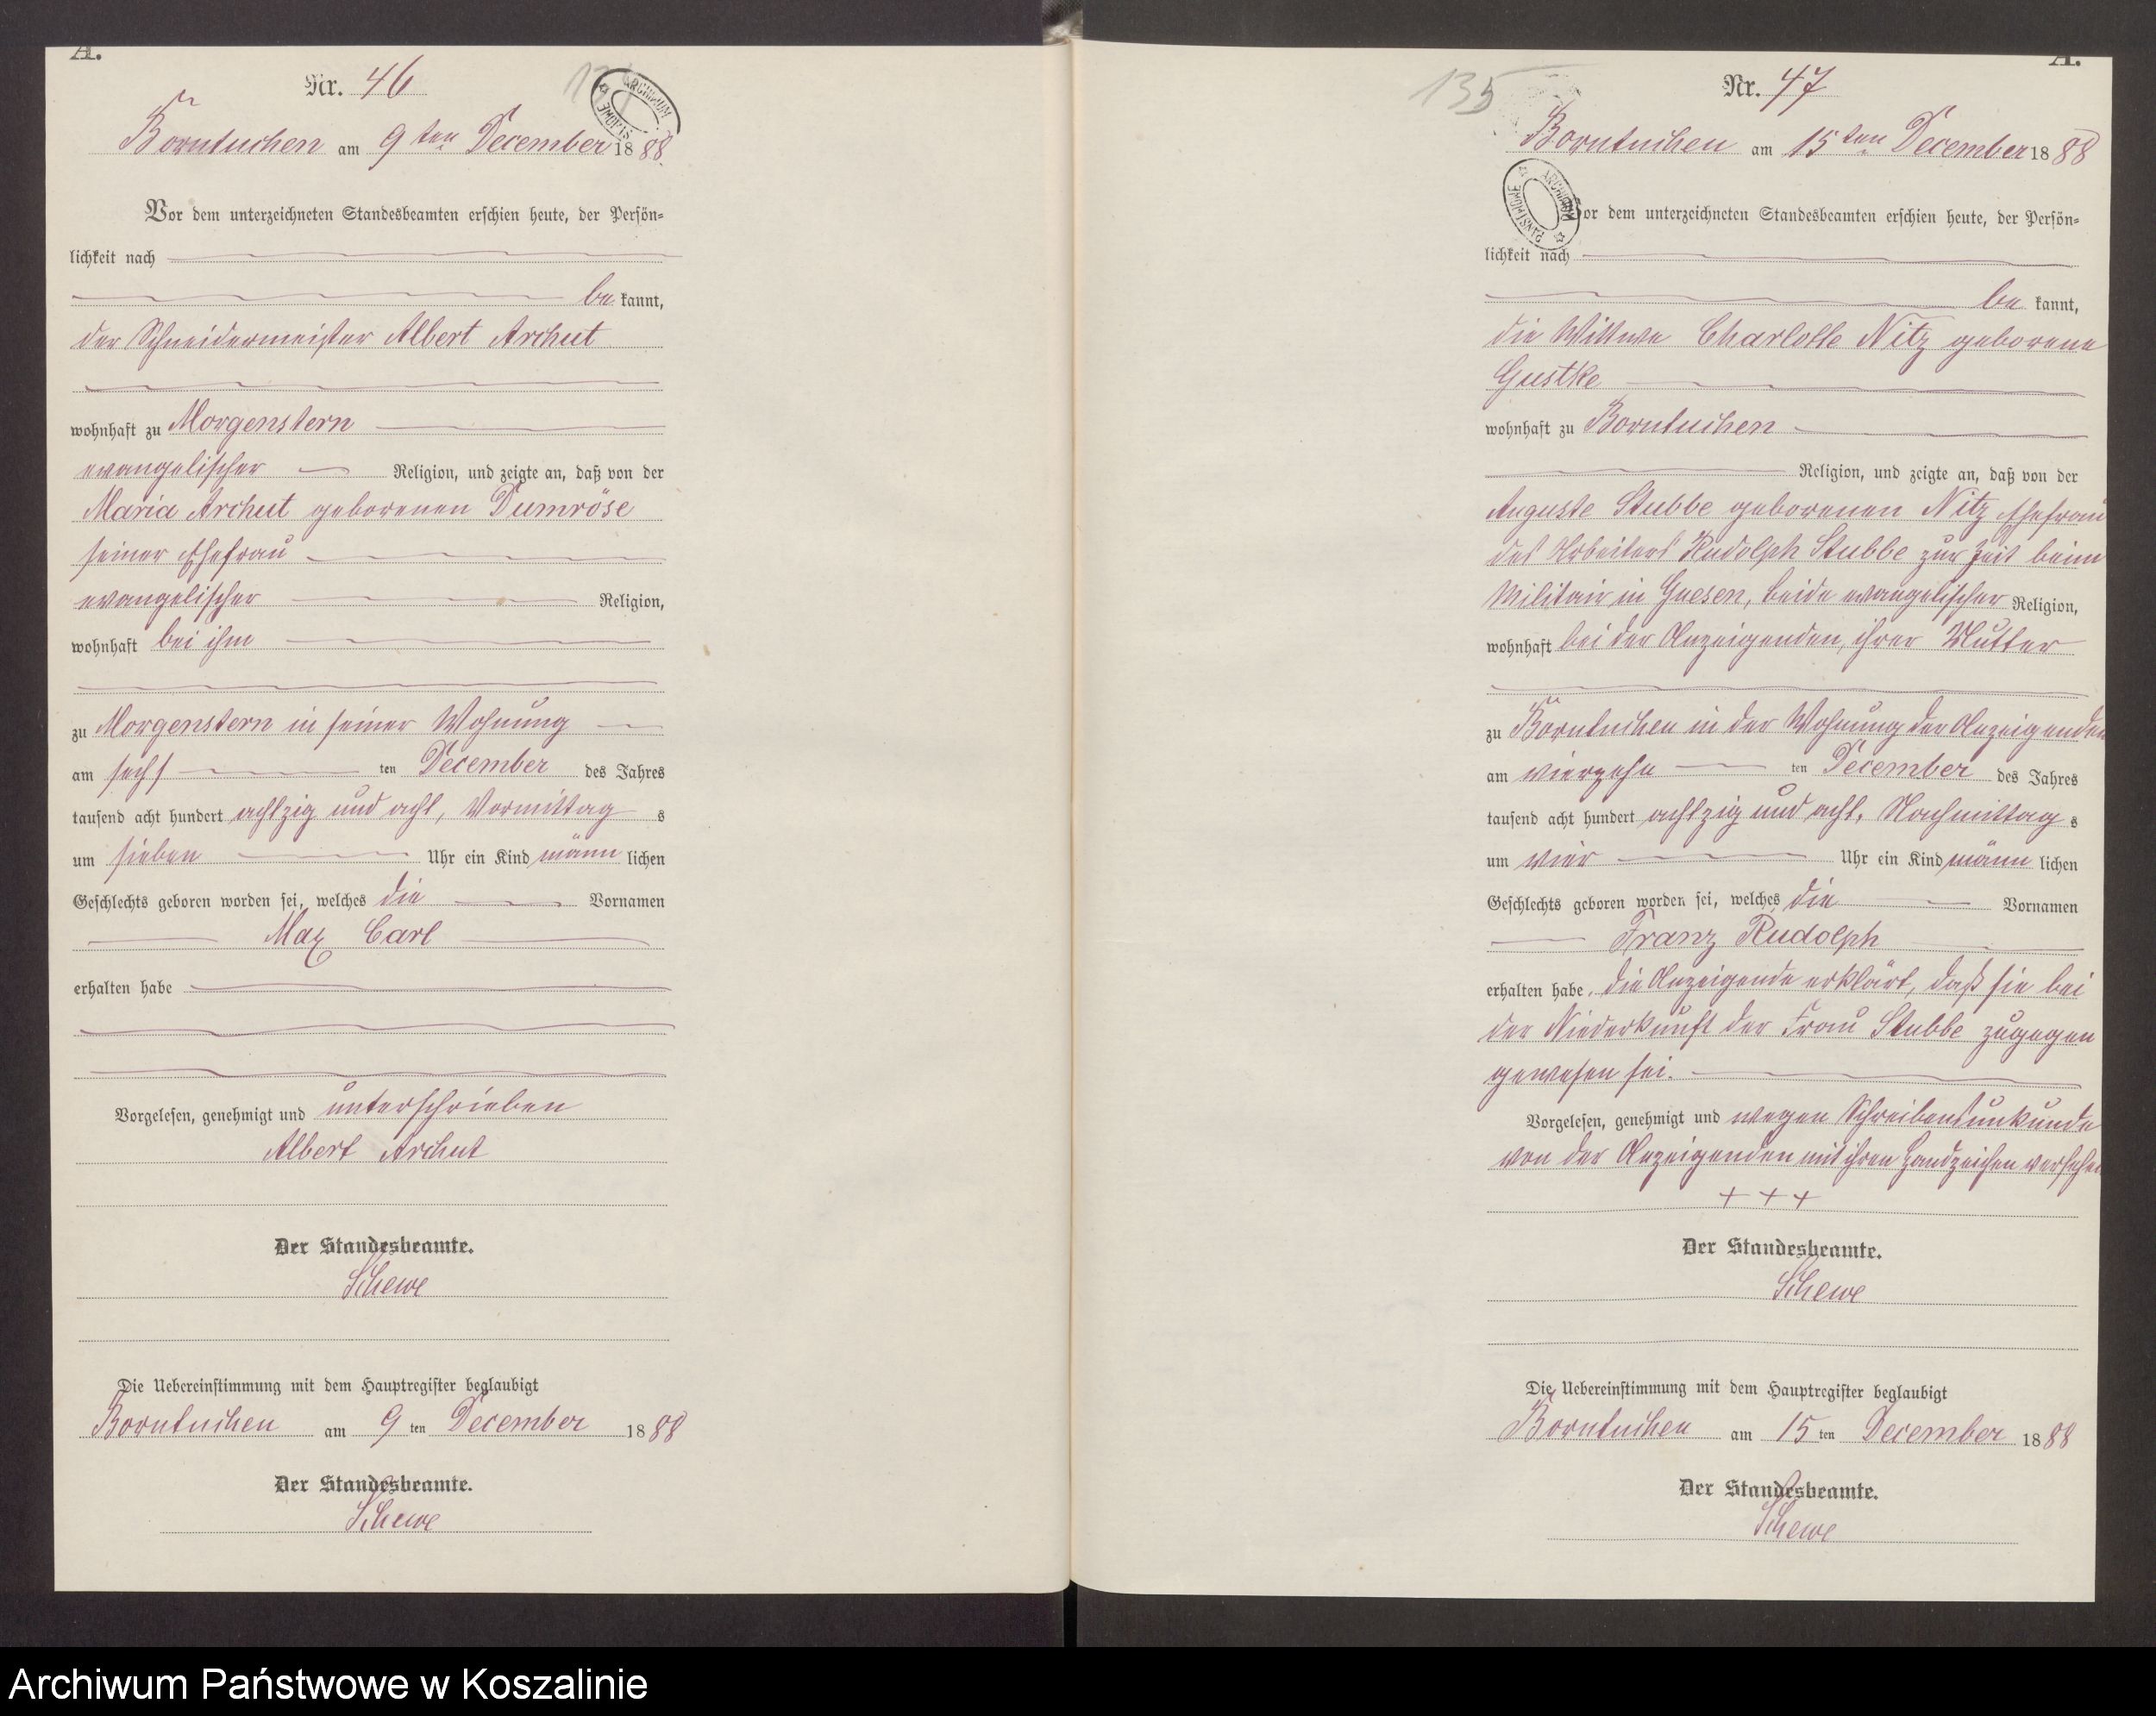 A.
Nr. 46
Borntuchen am 9ten December 1888
Vor dem unterzeichneten Standesbeamten erschien heute, der Persön=
lichkeit nach
be kannt,
der Schneidermeister Albert Archut
wohnhaft zu Morgenstern
evangelischer Religion, und zeigte an, daß von der
Maria Archut geborenen Dumröse
seiner Ehefrau
evangelischer Religion,
wohnhaft bei ihm
zu Morgenstern in seiner Wohnung
am sechs ten December des Jahres
tausend acht hundert achtzig und acht, Vormittag s
um sieben Uhr ein Kind männ lichen
Geschlechts geboren worden sei, welches die Vornamen
Max Carl
erhalten habe
Vorgelesen, genehmigt und unterschrieben
Albert Archut
Der Standesbeamte.
Schewe
Die Uebereinstimmung mit dem Hauptregister beglaubigt
Borntuchen am 9 ten December 1888
Der Standesbeamte.
Schewe
A.
135
Nr. 47
Borntuchen am 15ten December 1888
Vor dem unterzeichneten Standesbeamten erschien heute, der Persön=
lichkeit nach
be kannt,
die Wittwe Charlotte Nitz geborene
Gustke
wohnhaft zu Borntuchen
Religion, und zeigte an, daß von der
Auguste Stubbe geborenen Nitz Ehefrau
des Arbeiters Rudolph Stubbe zur Zeit beim
Militair in Gnesen, beide evangelischer Religion,
wohnhaft bei der Anzeigenden, ihrer Mutter
zu Borntuchen in der Wohnung der Anzeigenden
am vierzehn ten December des Jahres
tausend acht hundert achtzig und acht, Nachmittag s
um vier Uhr ein Kind männ lichen
Geschlechts geboren worden sei, welches die Vornamen
Franz Rudolph
erhalten habe. Die Anzeigende erklärt, daß sie bei
der Niederkunft der Frau Stubbe zugegen
gewesen sei.
Vorgelesen, genehmigt und wegen Schreibensunkunde
von der Anzeigenden mit ihren Handzeichen versehen
+ + +
Der Standesbeamte.
Schewe
Die Uebereinstimmung mit dem Hauptregister beglaubigt
Borntuchen am 15 ten December 1888
Der Standesbeamte.
Schewe
Archiwum Państwowe w Koszalinie